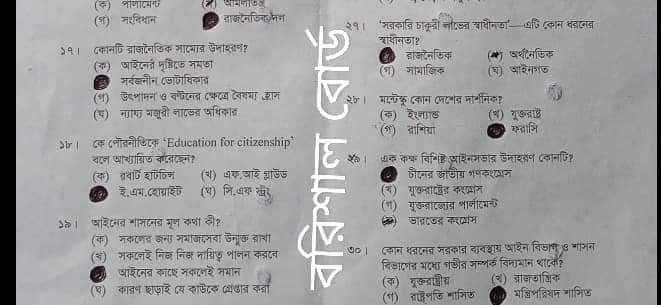 (ক) পার্লামেন্ট
(গ) সংবিধান
রাজনৈতিক দল
১৭। কোনটি রাজনৈতিক সাম্যের উদাহরণ?
(ক) আইনের দৃষ্টিতে সমতা
সর্বজনীন ভোটাধিকার
(গ) উৎপাদন ও বণ্টনের ক্ষেত্রে বৈষম্য হ্রাস
(ঘ) ন্যায্য মজুরী লাভের অধিকার
১৮। কে পৌরনীতিকে ‘Education for citizenship’
বলে আখ্যায়িত করেছেন?
(ক) রবার্ট হাটচিন্স (খ) এফ.আই গ্লাউড
ই.এম.হোয়াইট (ঘ) সি.এফ স্ট্রং
১৯। আইনের শাসনের মূল কথা কী?
(ক) সকলের জন্য সমাজসেবা উন্মুক্ত রাখা
(খ) সকলেই নিজ নিজ দায়িত্ব পালন করবে
আইনের কাছে সকলেই সমান
(ঘ) কারণ ছাড়াই যে কাউকে গ্রেপ্তার করা
বরিশাল বোর্ড
২৭। ‘সরকারি চাকুরী লাভের স্বাধীনতা’—এটি কোন ধরনের
স্বাধীনতা?
রাজনৈতিক অর্থনৈতিক
(গ) সামাজিক (ঘ) আইনগত
২৮। মন্টেস্কু কোন দেশের দার্শনিক?
(ক) ইংল্যান্ড (খ) যুক্তরাষ্ট্র
(গ) রাশিয়া ফরাসি
২৯। এক কক্ষ বিশিষ্ট আইনসভার উদাহরণ কোনটি?
চীনের জাতীয় গণকংগ্রেস
(খ) যুক্তরাষ্ট্রের কংগ্রেস
(গ) যুক্তরাজ্যের পার্লামেন্ট
ভারতের কংগ্রেস
৩০। কোন ধরনের সরকার ব্যবস্থায় আইন বিভাগ ও শাসন
বিভাগের মধ্যে গভীর সম্পর্ক বিদ্যমান থাকে?
(ক) যুক্তরাষ্ট্রীয় (খ) রাজতান্ত্রিক
(গ) রাষ্ট্রপতি শাসিত মন্ত্রিপরিষদ শাসিত